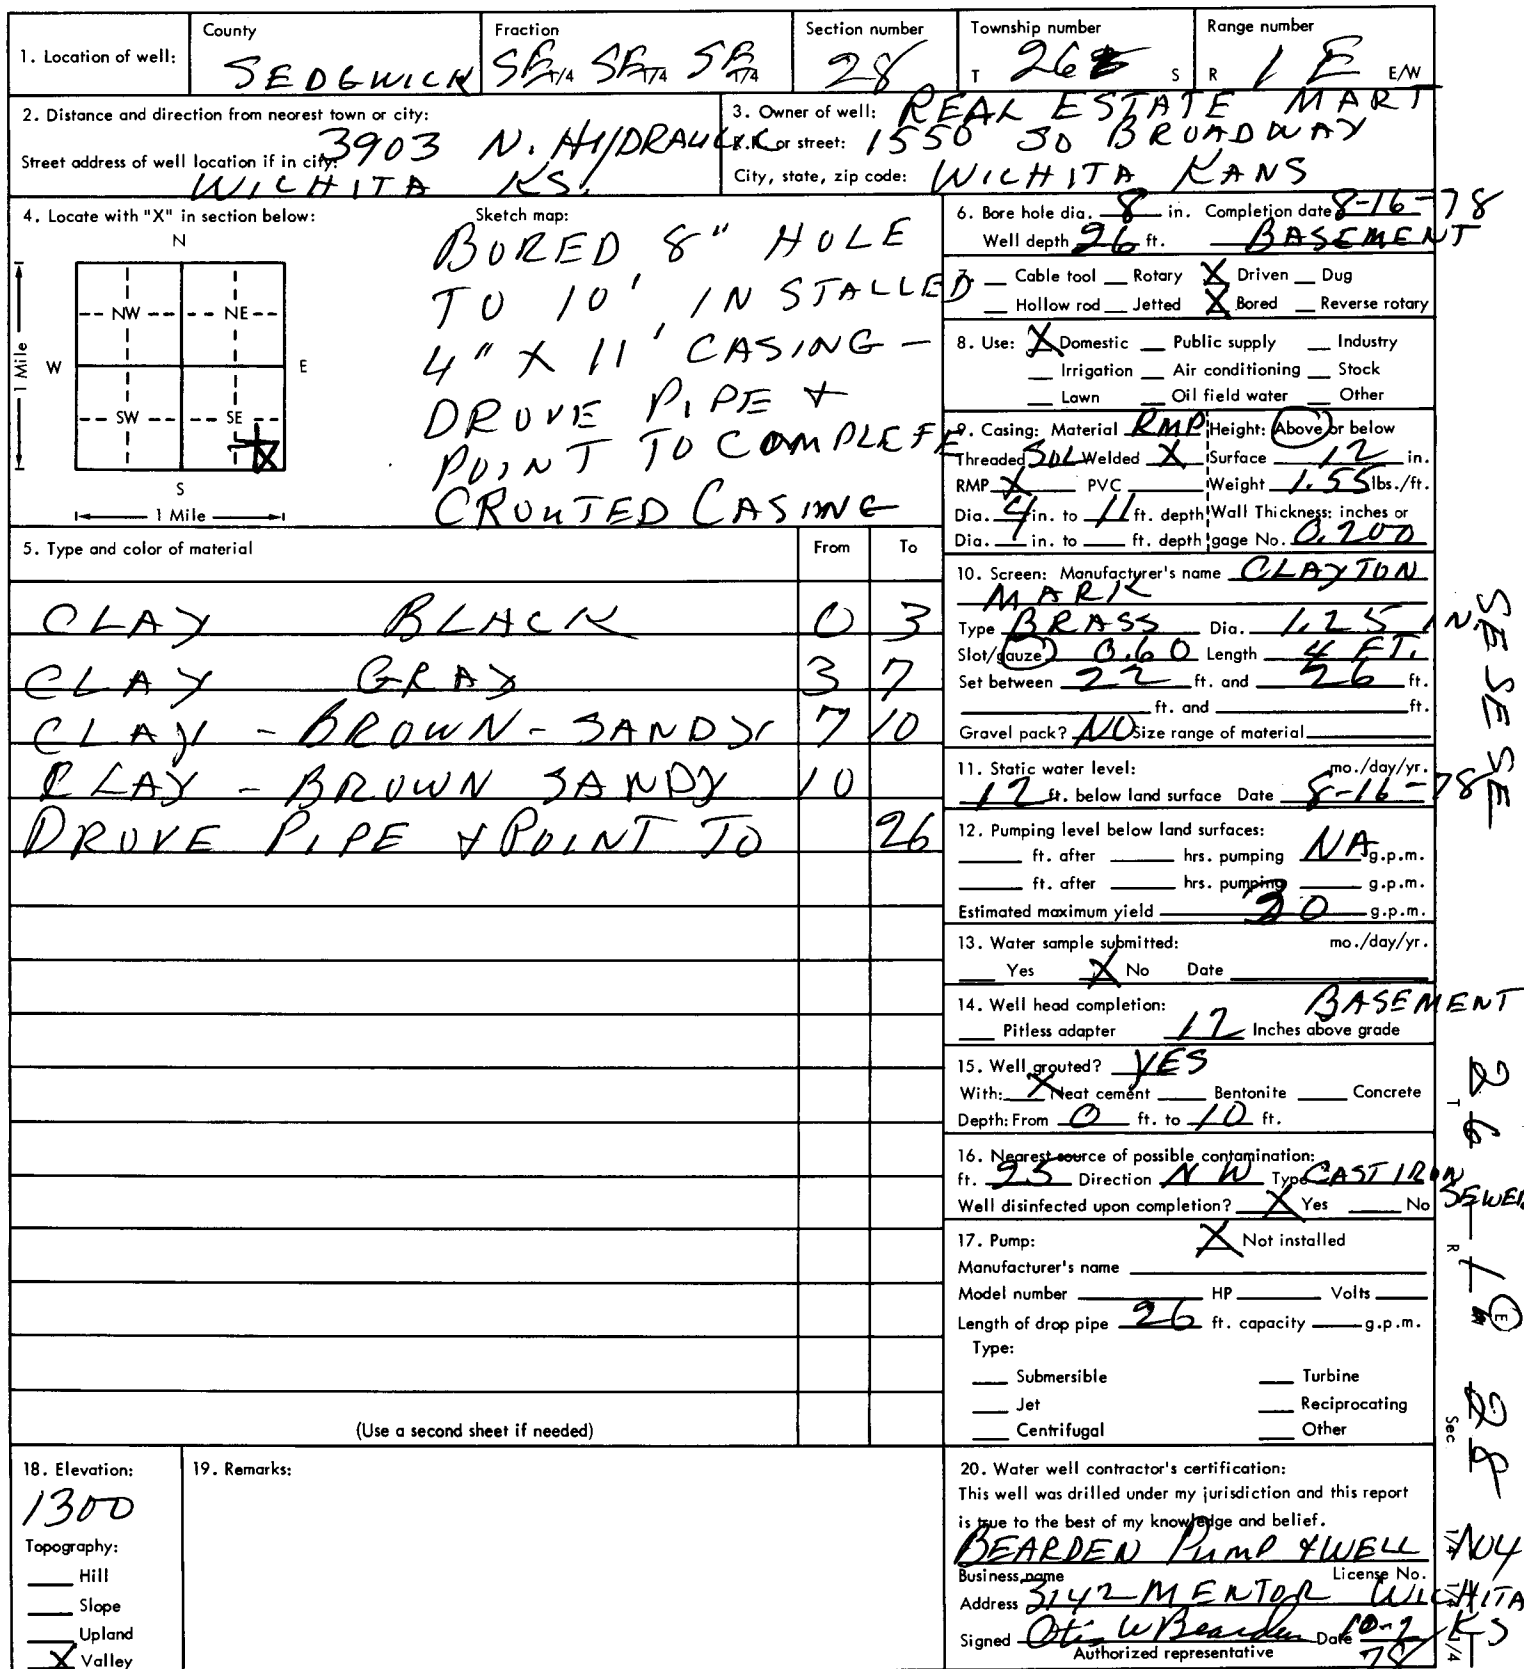 1. Location of well:
County
SEDGWICK
Fraction
SE 1/4 SE 1/4 SE 1/4
Section number
28
Township number
T 26 S
Range number
R 1 E E/W
2. Distance and direction from nearest town or city:
Street address of well location if in city: 3903 N. HYDRAULIC
WICHITA KS.
3. Owner of well: REAL ESTATE MART
R.R. or street: 1550 SO BROADWAY
City, state, zip code: WICHITA KANS
4. Locate with "X" in section below:
N
NW NE
W E
SW SE
X
S
1 Mile
1 Mile
Sketch map:
BORED 8" HOLE
TO 10', INSTALLED
4" X 11' CASING -
DROVE PIPE &
POINT TO COMPLETE
GROUTED CASING
5. Type and color of material From To
CLAY BLACK 0 3
CLAY GRAY 3 7
CLAY - BROWN - SANDY 7 10
CLAY - BROWN SANDY 10
DROVE PIPE & POINT TO 26
(Use a second sheet if needed)
6. Bore hole dia. 8 in. Completion date 8-16-78
Well depth 26 ft. BASEMENT
7. Cable tool Rotary X Driven Dug
Hollow rod Jetted X Bored Reverse rotary
8. Use: X Domestic Public supply Industry
Irrigation Air conditioning Stock
Lawn Oil field water Other
9. Casing: Material RMP Height: Above or below
Threaded SOL Welded X Surface 12 in.
RMP X PVC Weight 1.55 lbs./ft.
Dia. 4 in. to 11 ft. depth Wall Thickness: inches or
Dia. in. to ft. depth gage No. 0.200
10. Screen: Manufacturer's name CLAYTON
MARK
Type BRASS Dia. 1.25 IN.
Slot/gauze 0.60 Length 4 FT.
Set between 22 ft. and 26 ft.
ft. and ft.
Gravel pack? NO Size range of material
11. Static water level: mo./day/yr.
12 ft. below land surface Date 8-16-78
12. Pumping level below land surfaces:
ft. after hrs. pumping NA g.p.m.
ft. after hrs. pumping g.p.m.
Estimated maximum yield 30 g.p.m.
13. Water sample submitted: mo./day/yr.
Yes X No Date
14. Well head completion: BASEMENT
Pitless adapter 12 Inches above grade
15. Well grouted? YES
With: X Neat cement Bentonite Concrete
Depth: From 0 ft. to 10 ft.
16. Nearest source of possible contamination:
ft. 25 Direction NW Type CAST IRON
SEWER
Well disinfected upon completion? X Yes No
17. Pump: X Not installed
Manufacturer's name
Model number HP Volts
Length of drop pipe 26 ft. capacity g.p.m.
Type:
Submersible Turbine
Jet Reciprocating
Centrifugal Other
18. Elevation:
1300
Topography:
Hill
Slope
Upland
X Valley
19. Remarks:
20. Water well contractor's certification:
This well was drilled under my jurisdiction and this report
is true to the best of my knowledge and belief.
BEARDEN PUMP & WELL
Business name License No.
Address 3142 MENTOR WICHITA
KS
Signed Otis W Bearden Date
78
Authorized representative
SE SE SE
T 26
R 1 E
Sec 28
1/4 1/4 1/4